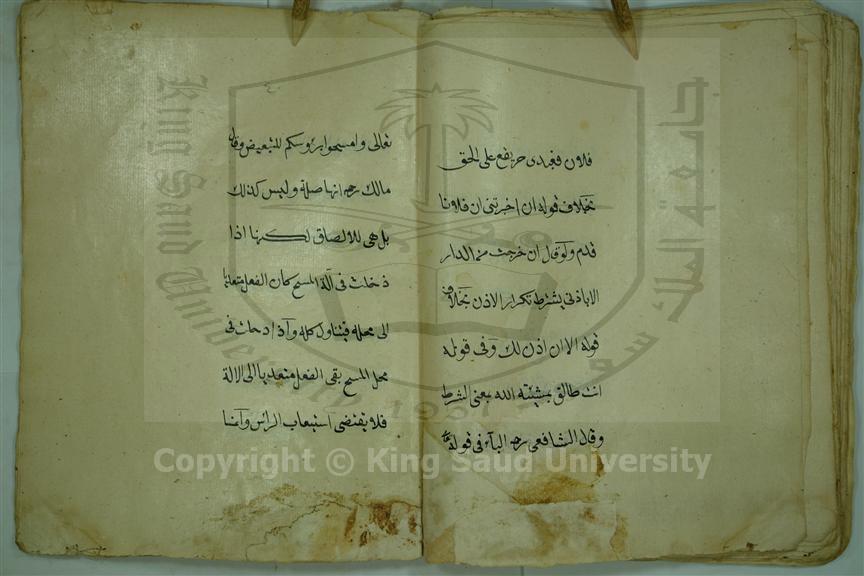 فلان فعبدى حر يقع على الحق
بخلاف قوله ان اخبرتنى ان فلانا
قدم ولو قال ان خرجت من الدار
الا باذنى يشترط تكرار الاذن بخلاف
قوله الا ان اذن لك وفى قوله
انت طالق بمشيئته الله بمعنى الشرط
وقال الشافعى رحمه الباء فى قوله
تعالى وامسحوا برؤسكم للتبعيض وقال
مالك رحمه انها صلة وليس كذلك
بل هى للالصاق لكنها اذا
دخلت فى آلة المسح كان الفعل متعديا
الى محله فيتناول كله واذا دخلت فى
محل المسح بقى الفعل متعديا الى الالة
فلا يقتضى استيعاب الرأس وانما
جامعة الملك سعود
King Saud University
1957
Copyright © King Saud University